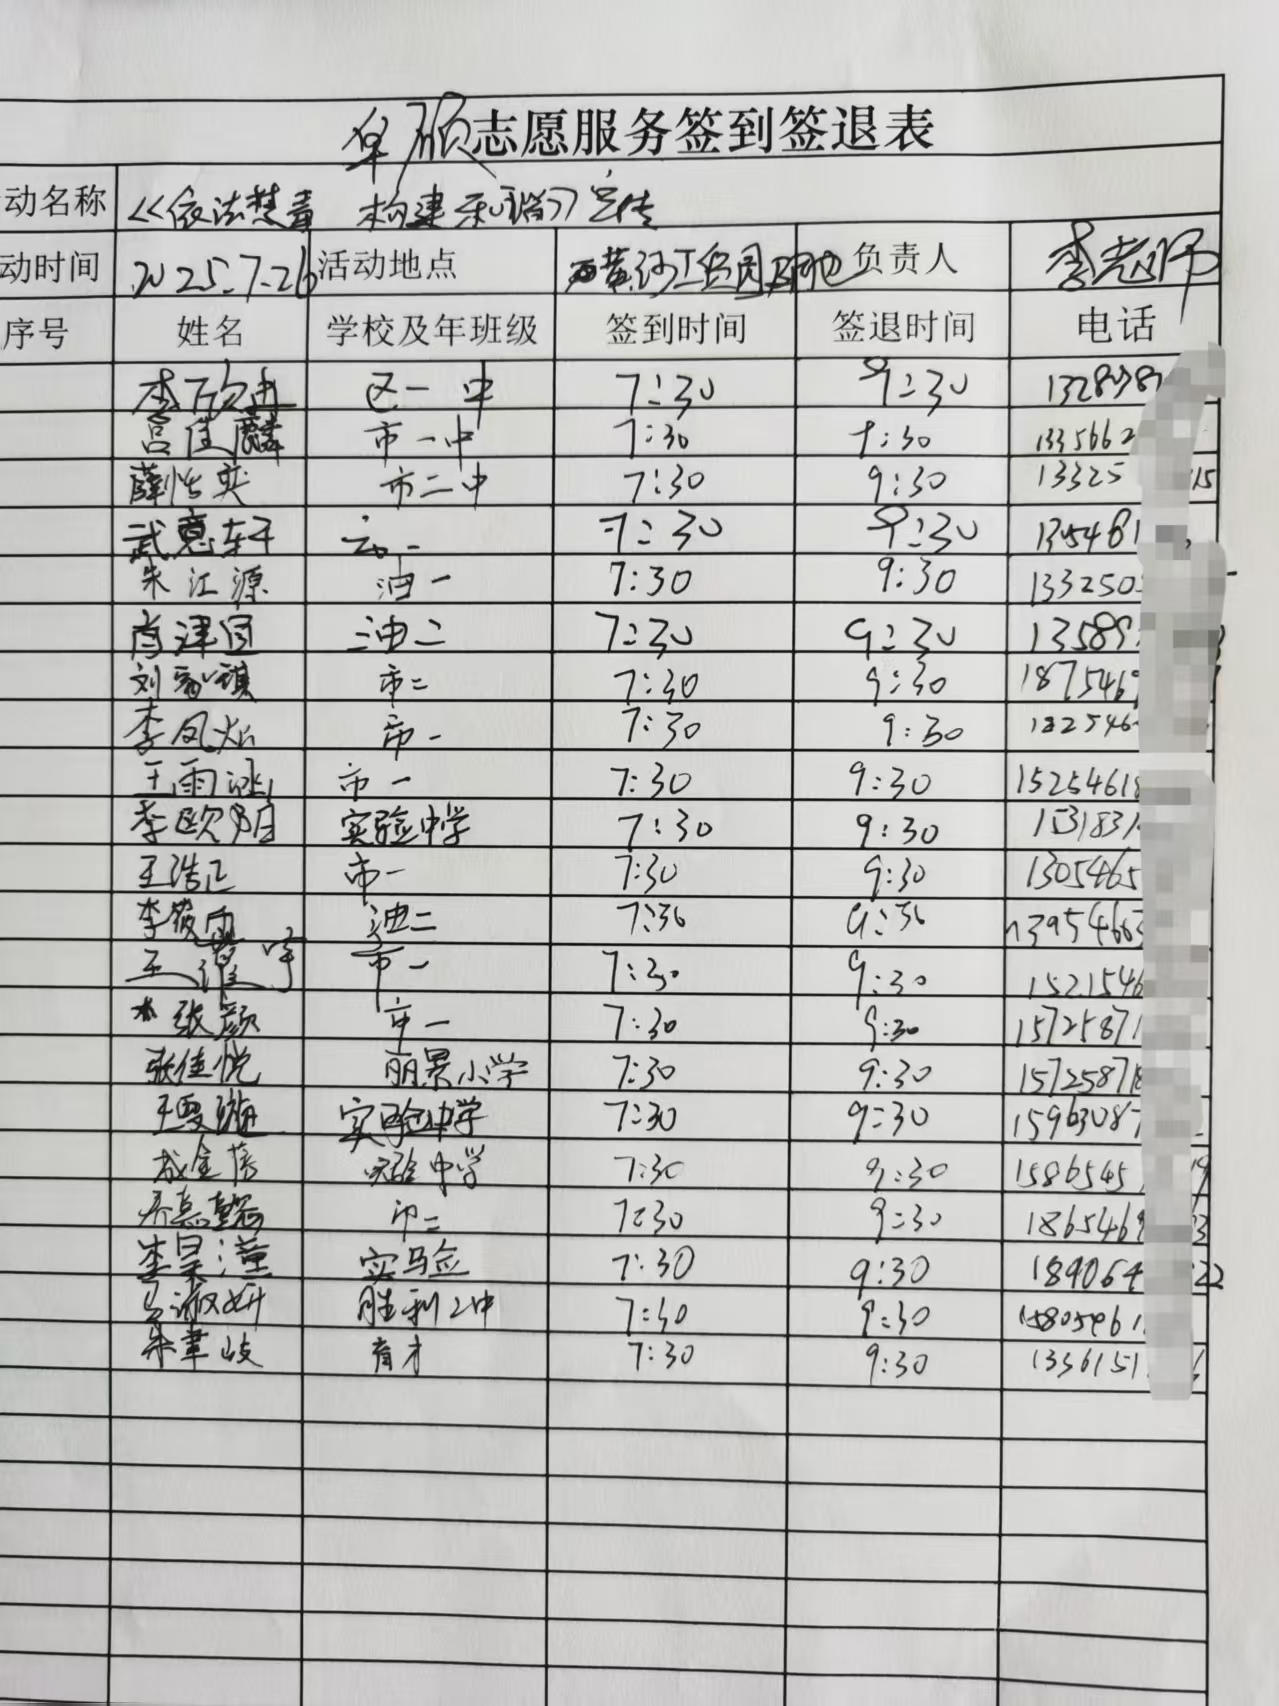 志愿服务签到签退表
动名称 《依法禁毒 构建和谐》宣传
动时间 2025.7.26 活动地点 负责人 李老师
序号 姓名 学校及年班级 签到时间 签退时间 电话
李欣冉 区一中 7:30 9:30 132898
吕佳麟 市一中 7:30 9:30 1335662
薛怡奕 市二中 7:30 9:30 13325 15
武意轩 7:30 9:30 1354681
朱江源 油一 7:30 9:30 1332505
肖津宜 油二 7:30 9:30 13589
刘 琪 市二 7:30 9:30 1875469
李凤 市一 7:30 9:30 1225466
王雨涵 市一 7:30 9:30 15254618
李欧阳 实验中学 7:30 9:30 1531831
王浩正 市一 7:30 9:30 1305465
李筱雨 油二 7:30 9:30 13954663
王 宇 市一 7:30 9:30 1521546
张颜 市一 7:30 9:30 15725871
张佳悦 丽景小学 7:30 9:30 15725871
王 实验中学 7:30 9:30 15963087
成金蓓 实验中学 7:30 9:30 1586545 9
乔嘉懿 市二 7:30 9:30 1865469 3
李昊潼 实验 7:30 9:30 189064 22
马淑妍 胜利二中 7:30 9:30 15805461
朱聿岐 育才 7:30 9:30 1336151